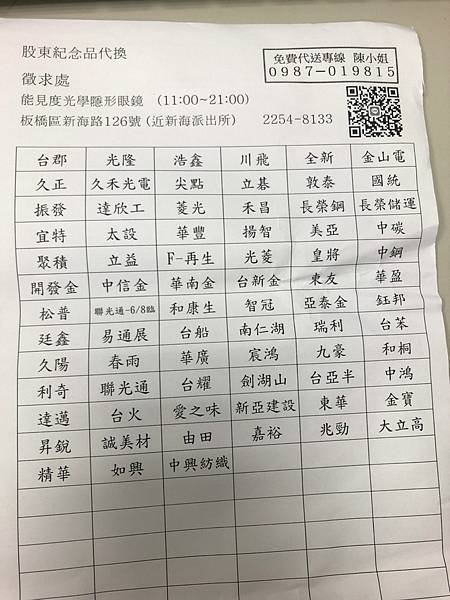 股東紀念品代換
免費代送專線 陳小姐
0987-019815
徵求處
能見度光學隱形眼鏡 (11:00~21:00)
板橋區新海路126號(近新海派出所) 2254-8133
台郡 光隆 浩鑫 川飛 全新 金山電
久正 久禾光電 尖點 立碁 敦泰 國統
振發 達欣工 菱光 禾昌 長榮鋼 長榮儲運
宜特 太設 華豐 揚智 美亞 中碳
聚積 立益 F-再生 光菱 皇將 中鋼
開發金 中信金 華南金 台新金 東友 華盈
松普 聯光通-6/8臨 和康生 智冠 亞泰金 鈺邦
廷鑫 易通展 台船 南仁湖 瑞利 台苯
久陽 春雨 華廣 宸鴻 九豪 和桐
利奇 聯光通 台耀 劍湖山 台亞半 中鴻
達邁 台火 愛之味 新亞建設 東華 金寶
昇銳 誠美材 由田 嘉裕 兆勁 大立高
精華 如興 中興紡織